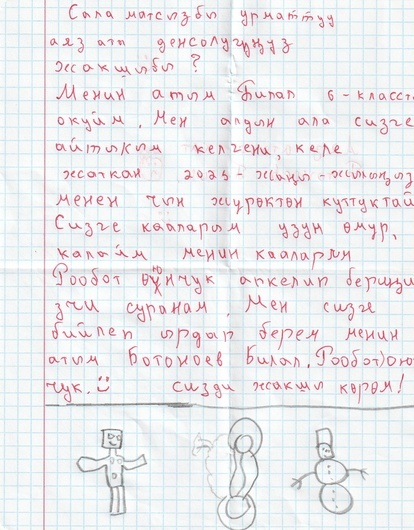 Саламатсызбы урматтуу
аяз ата денсолугуңуз
жакшыбы?
Менин атым Билал 6-класста
окуйм. Мен алдын ала сизге
айтыкым келгени, келе
жаткан 2023-жаңы-жылыңыз
менен чын жүрөктөн куттуктай
Сизге кааларым узун өмүр,
калайм менин кааларым
Рообот оюнчук алкелип бериңи
зчи суранам, Мен сизге
бийлеп ырдар берем менин
атым Ботоноев Билал. Рообот)ою
чук. сизди жакшы көрөм!